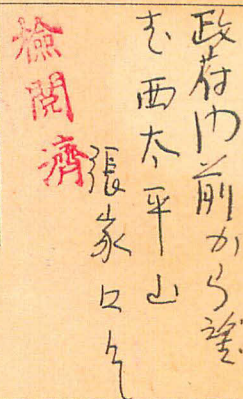 政府门前から望
む西太平山
張家口
檢閲濟